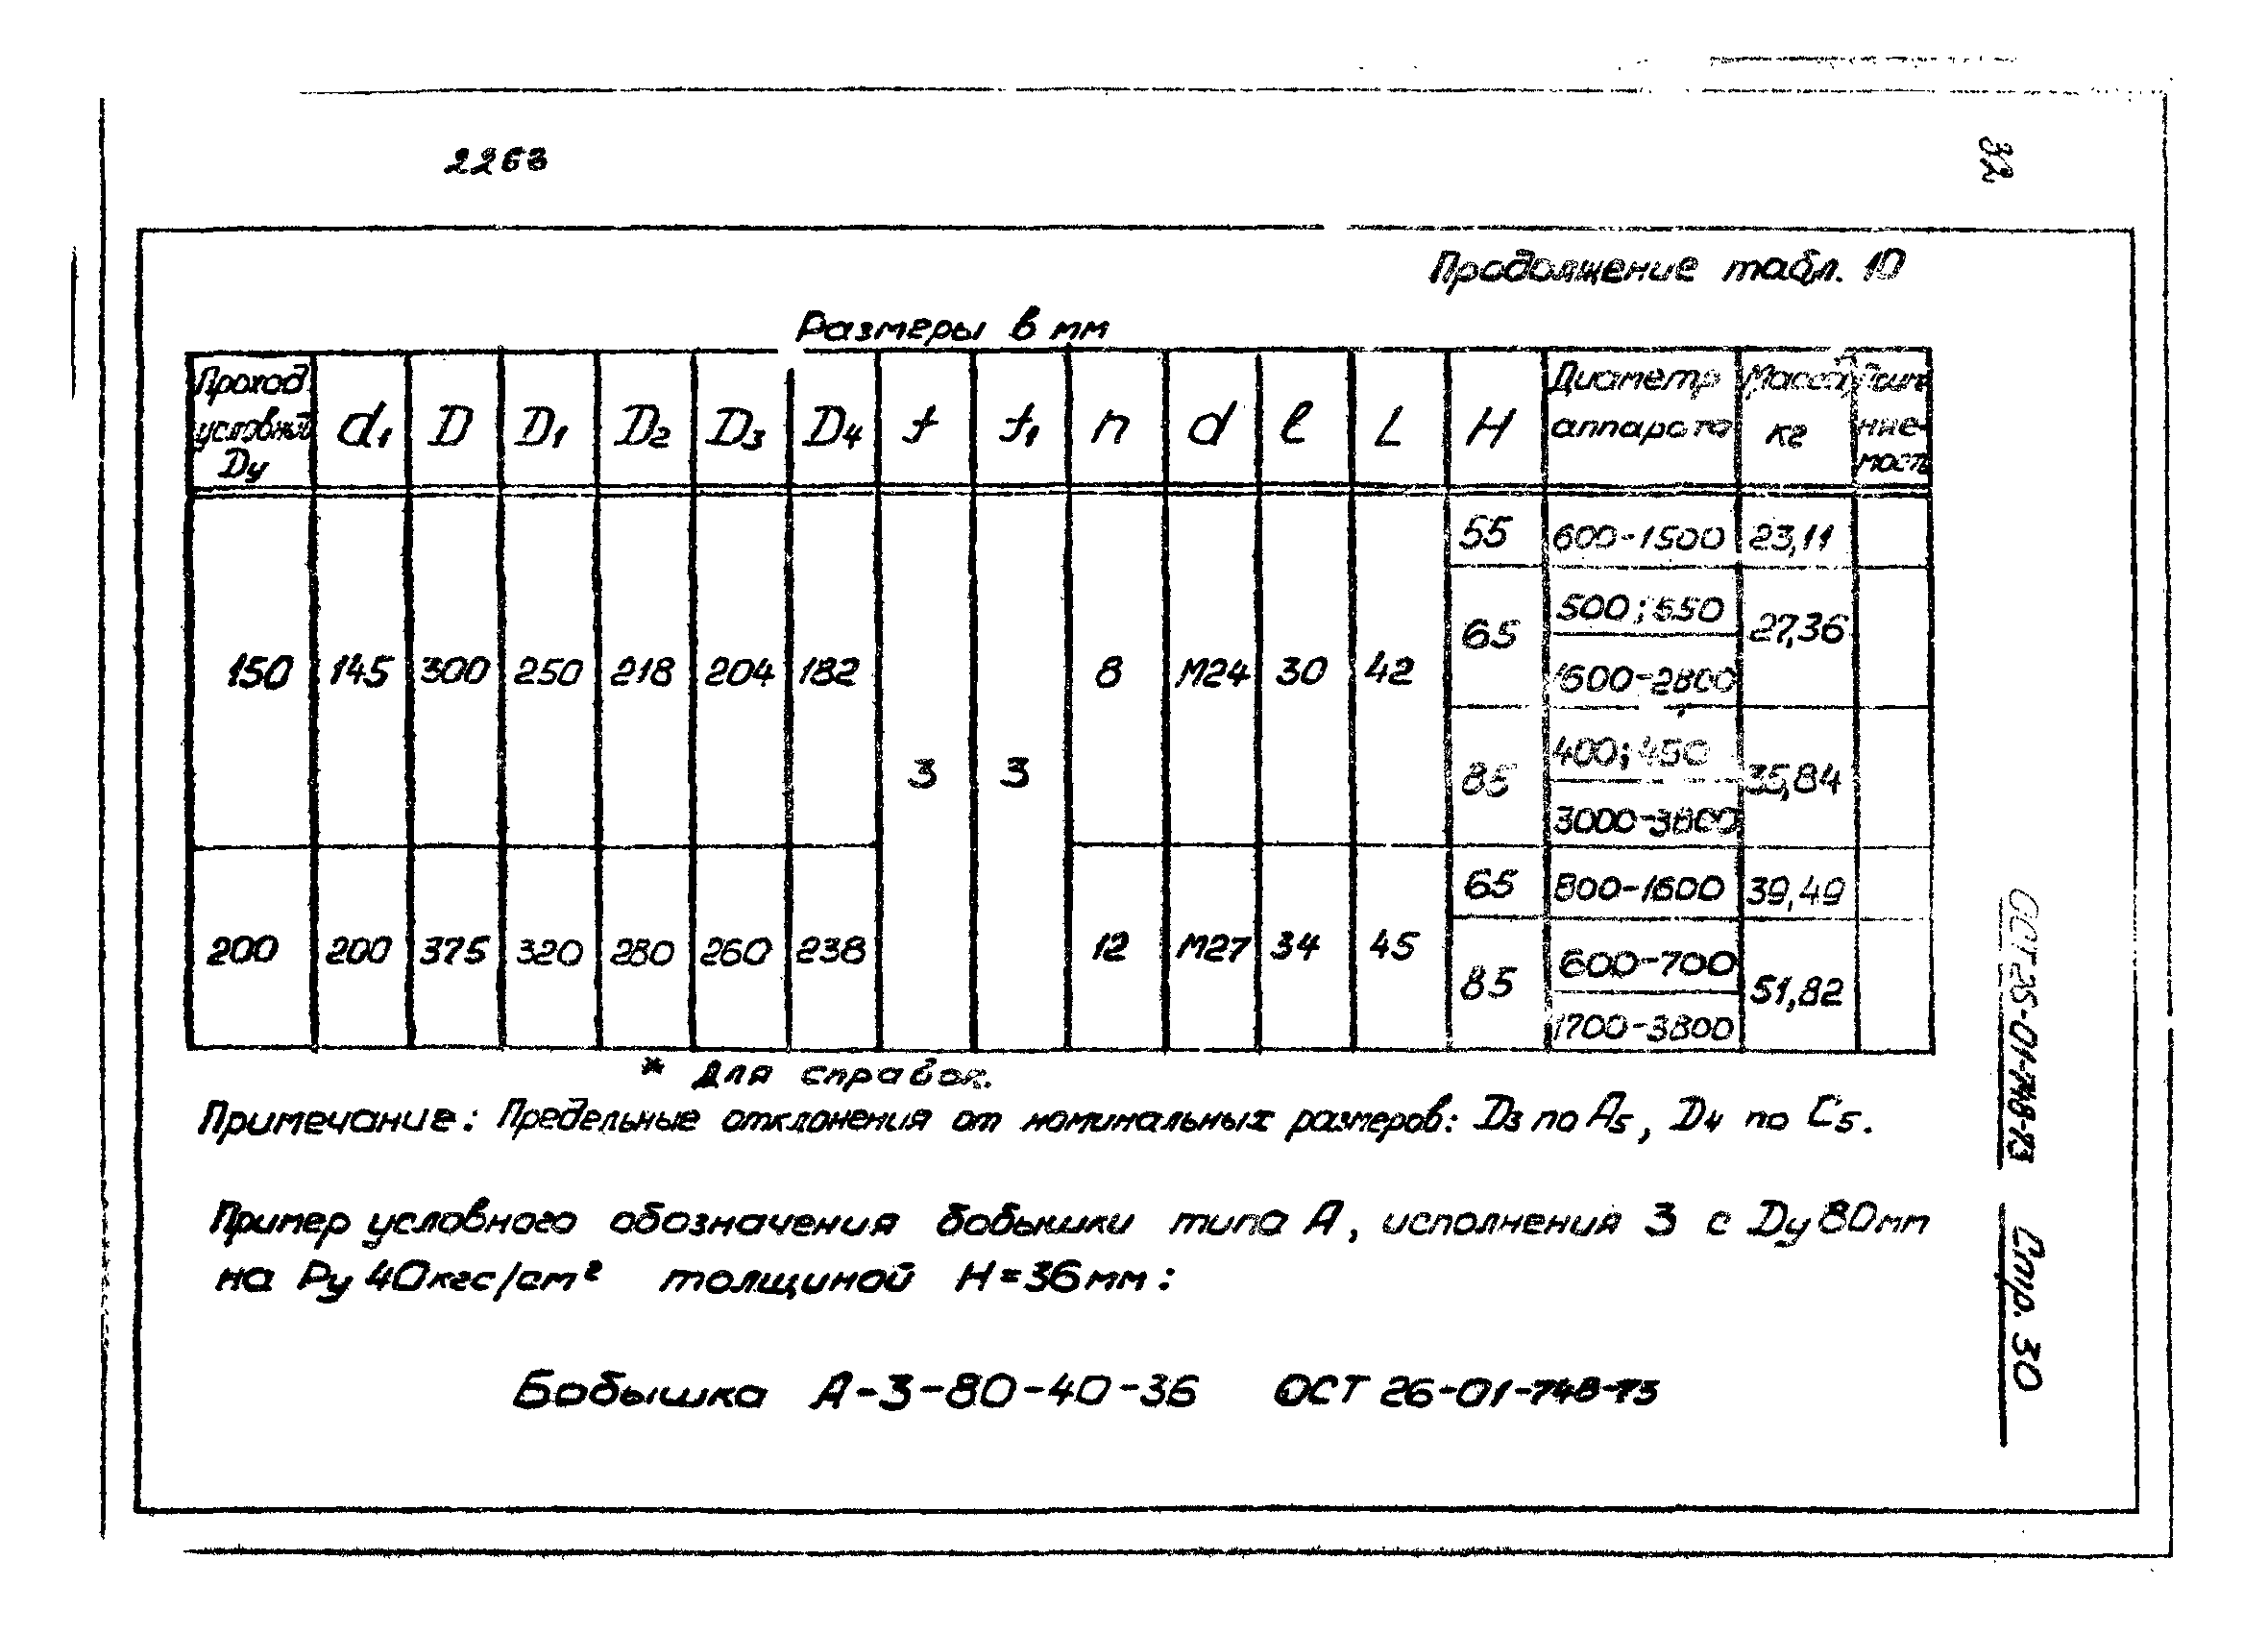 2263
32
Продолжение табл. 10
Размеры в мм
Проход условный Dу | d1 | D | D1 | D2 | D3 | D4 | f | f1 | n | d | l | L | H | Диаметр аппарата | Масса кг
150 | 145 | 300 | 250 | 218 | 204 | 182 | 3 | 3 | 8 | М24 | 30 | 42 | 55 | 600-1500 | 23,11
65 | 500; 550 | 27,36
1600-2800
85 | 400; 450 | 35,84
3000-3800
200 | 200 | 375 | 320 | 280 | 260 | 238 | 12 | М27 | 34 | 45 | 65 | 800-1600 | 39,49
85 | 600-700 | 51,82
1700-3800
* Для справок.
Примечание: Предельные отклонения от номинальных размеров: D3 по A5, D4 по C5.
Пример условного обозначения бобышки типа А, исполнения 3 с Dу 80мм
на Pу 40кгс/см² толщиной H=36мм:
Бобышка А-3-80-40-36 ОСТ 26-01-748-73
ОСТ 26-01-748-73 Стр. 30